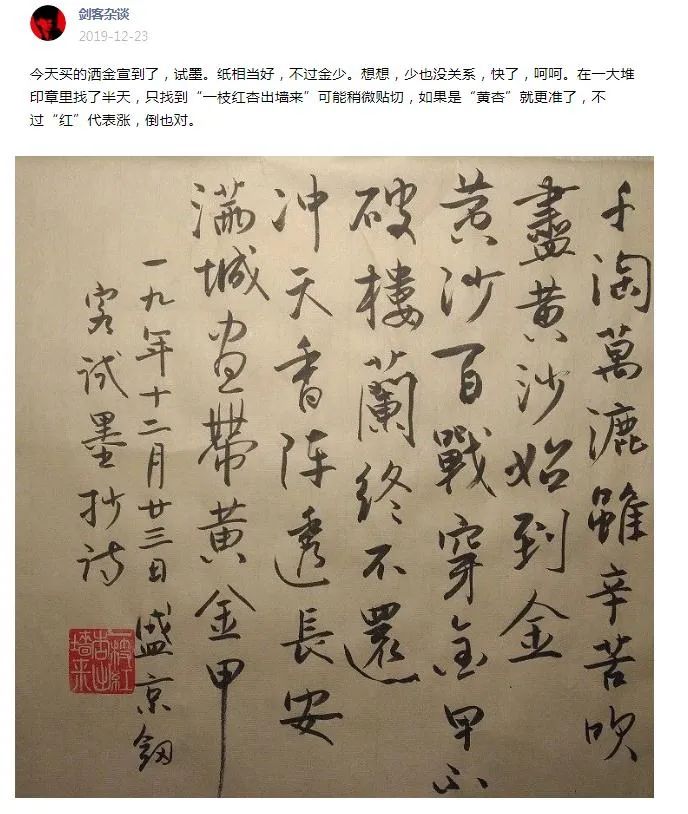 剑客杂谈
2019-12-23
今天买的洒金宣到了，试墨。纸相当好，不过金少。想想，少也没关系，快了，呵呵。在一大堆
印章里找了半天，只找到“一枝红杏出墙来”可能稍微贴切，如果是“黄杏”就更准了，不
过“红”代表涨，倒也对。
千淘萬漉雖辛苦吹
盡黄沙始到金
黄沙百戰穿金甲不
破樓蘭終不還
冲天香阵透長安
滿城盡帶黄金甲
一九年十二月廿三日盛京劔
客试墨抄诗
一枝紅
杏出
墙来